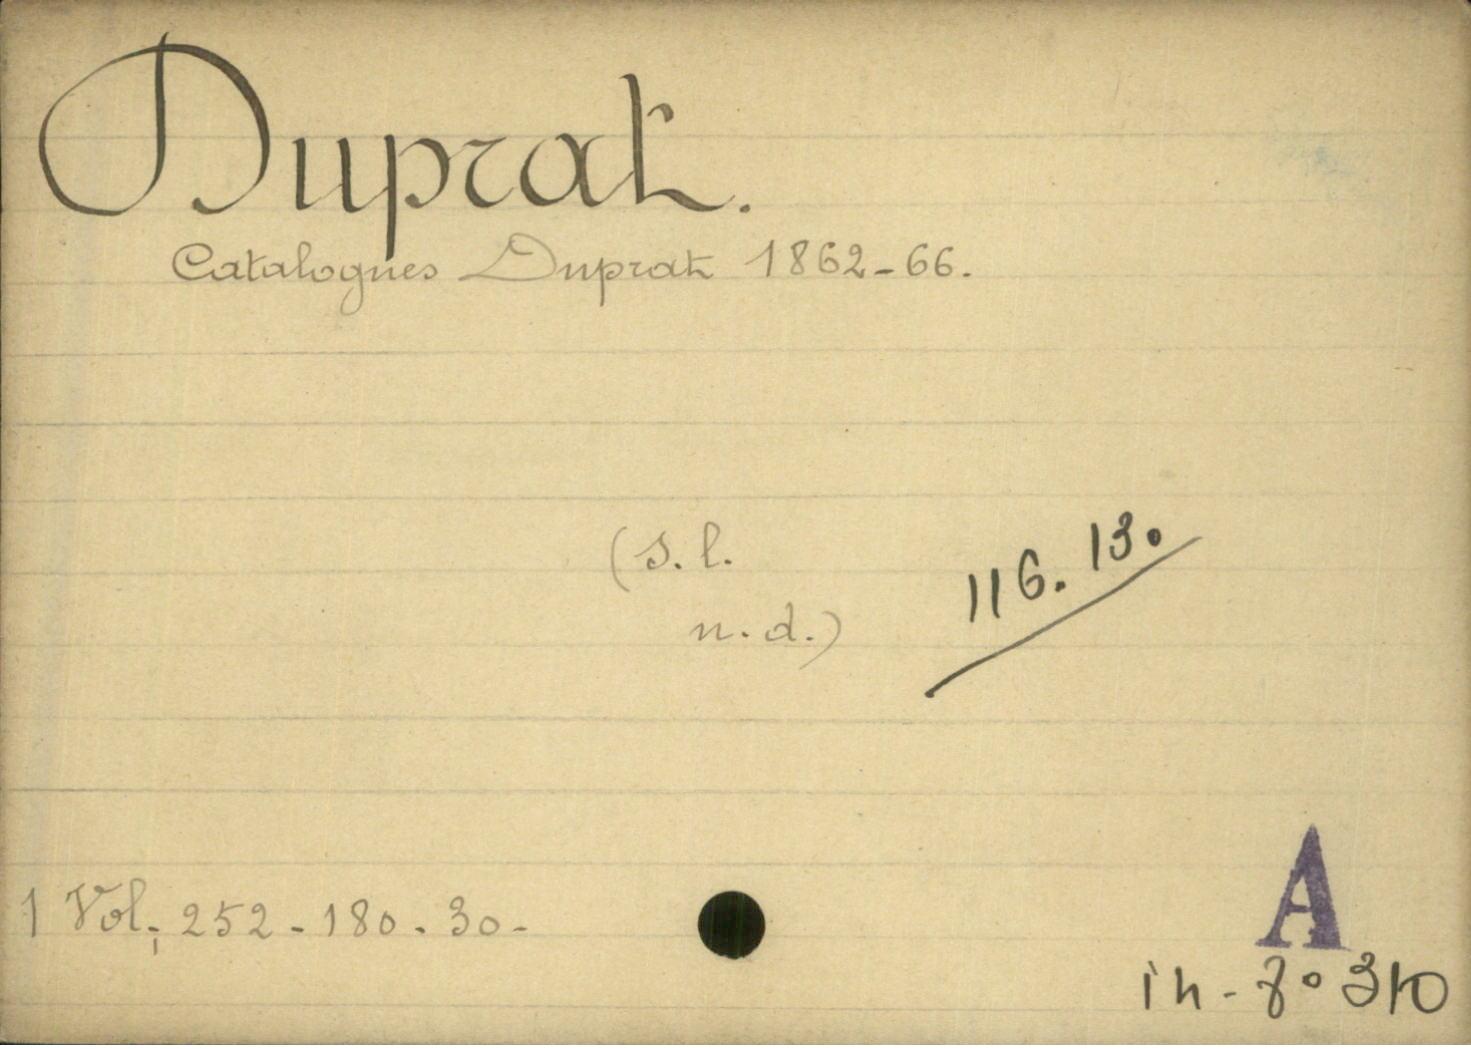 Duprat.
Catalogues Duprat 1862-66.
(s. l.
n. d.)
116. 13.
1 Vol; 252-180.30-
A
in-8° 310